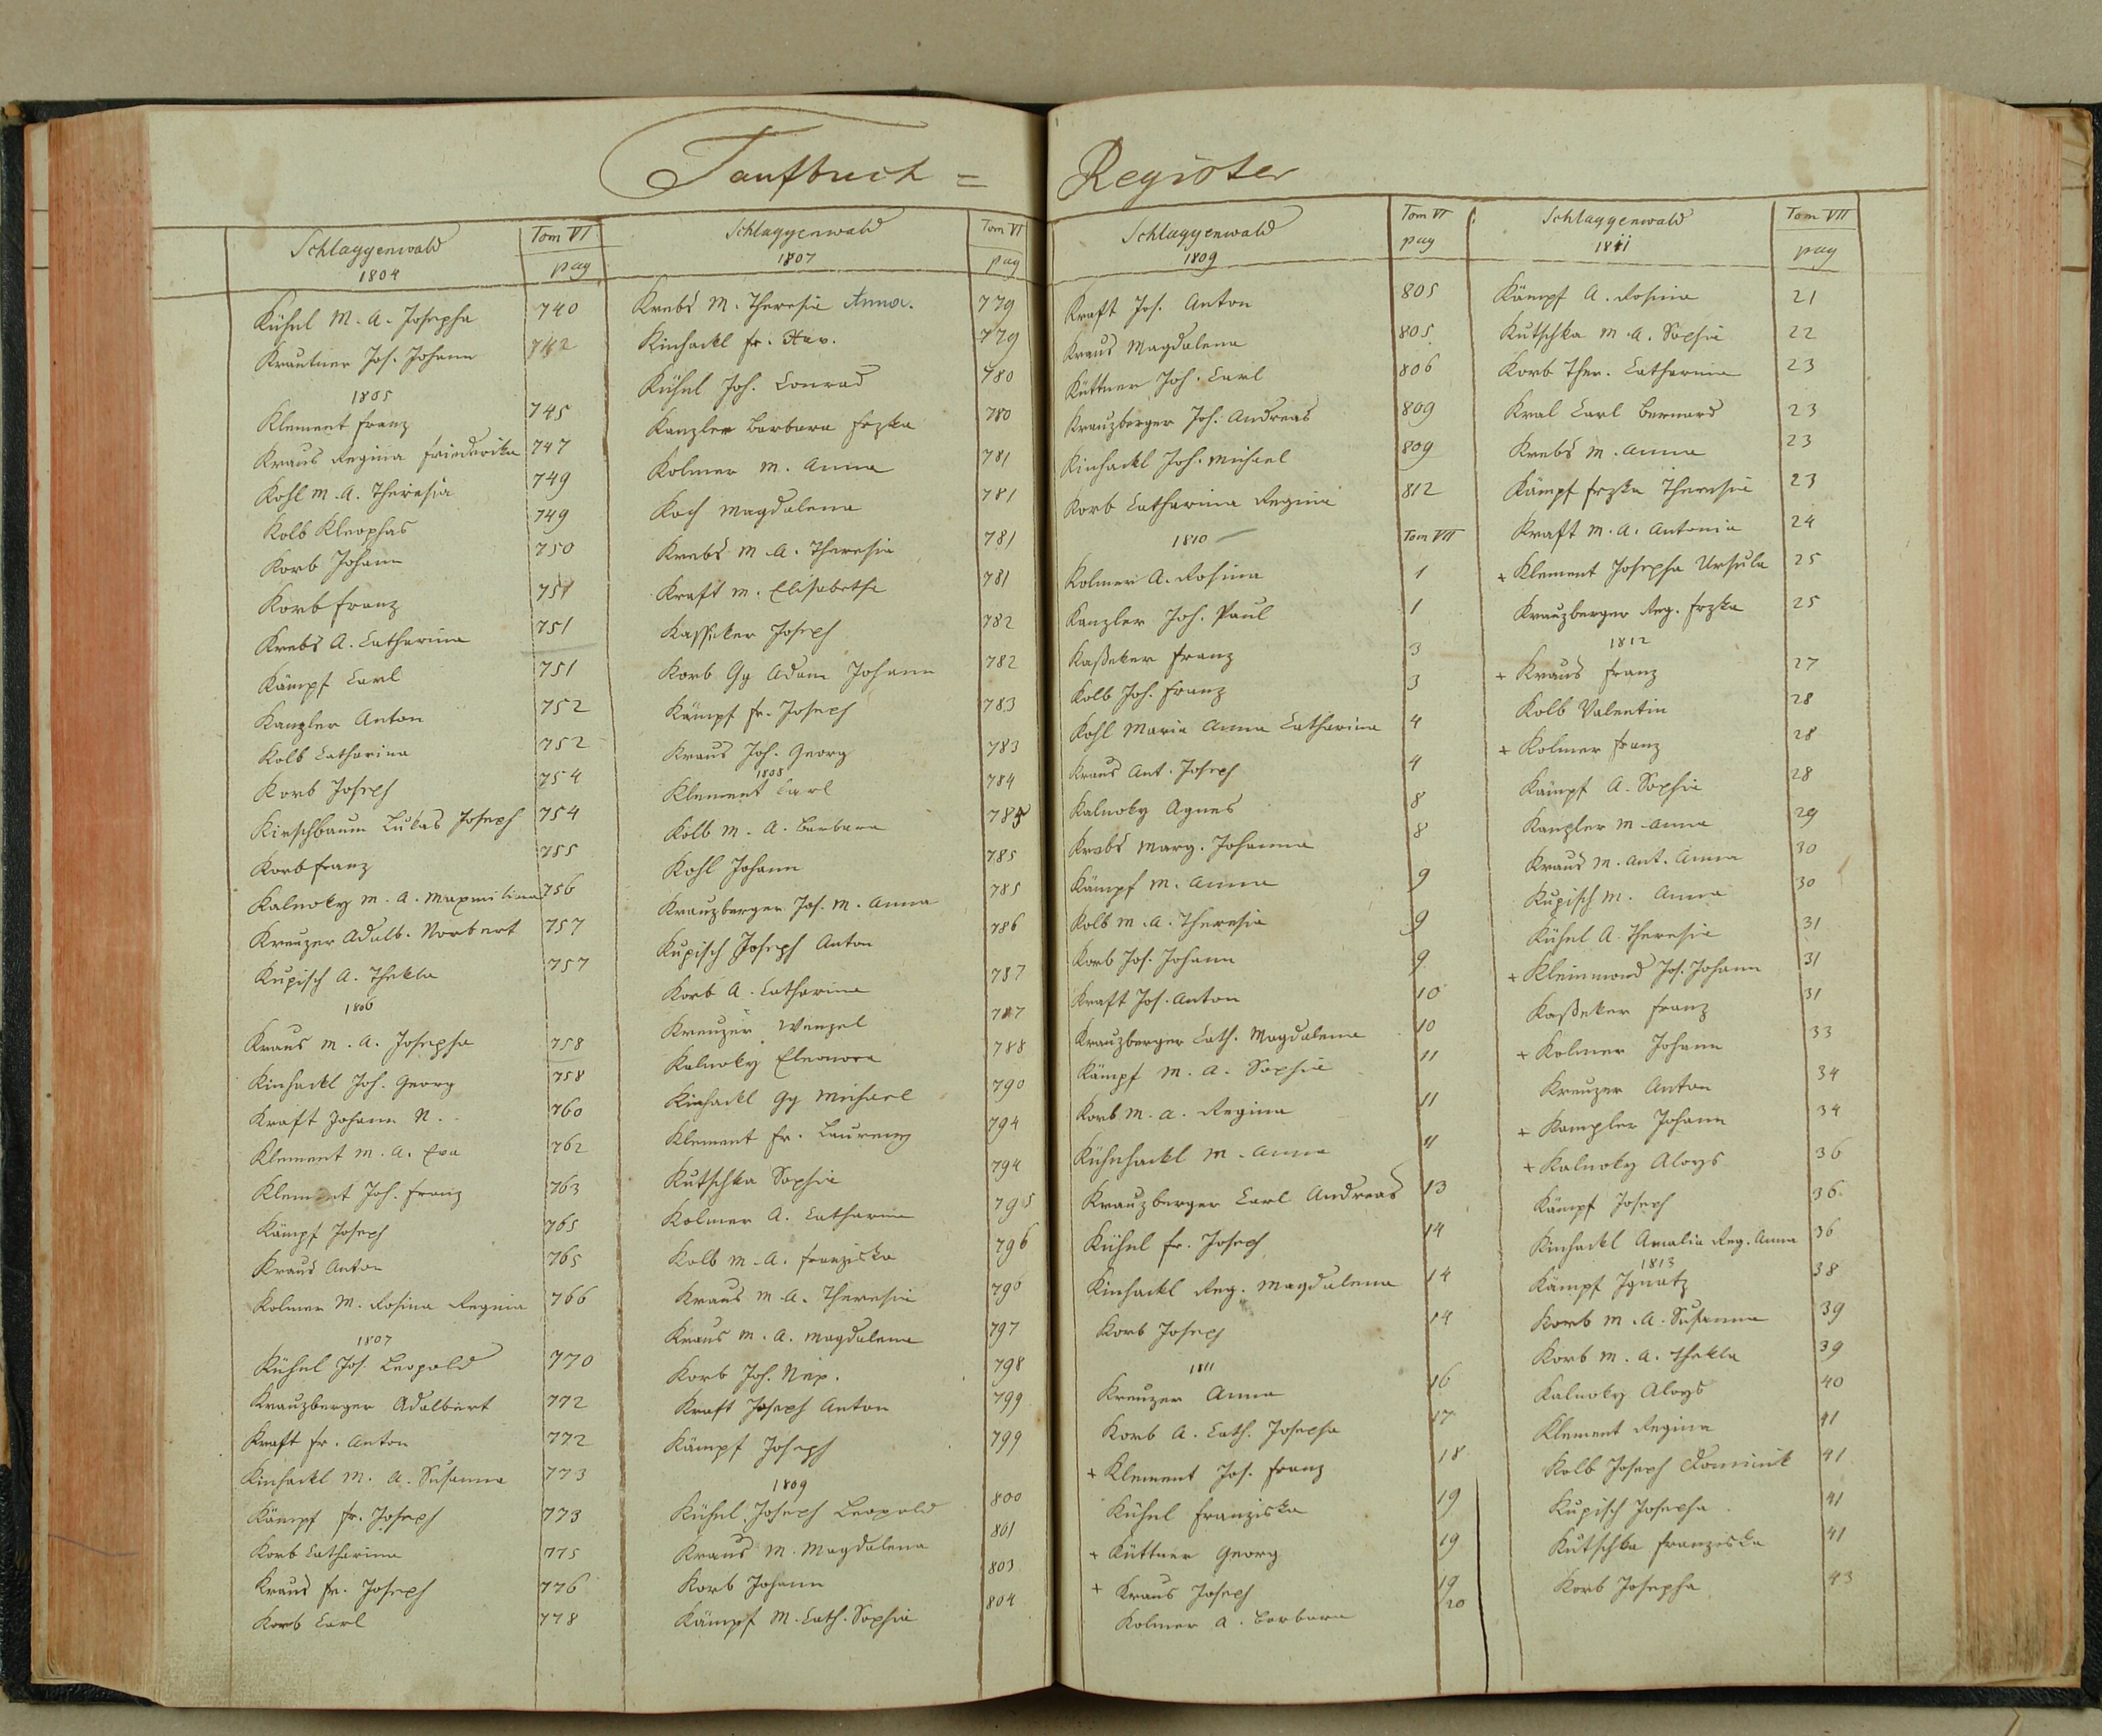 Taufbuch = Register
Schlaggenwald
1804
Tom VI
pag
Kühnl M. A. Josepha 740
Krautner Jos. Johann 742
1805
Klement Franz 745
Kraus Regina Friederika 747
Kohl M. A. Theresia 749
Kolb Kleophas 749
Korb Johann 750
Korb Franz 751
Krebs A. Catharina 751
Kämpf Carl 751
Kanzler Anton 752
Kolb Catharina 752
Korb Joseph 754
Kirschbaum Lukas Joseph 754
Korb Franz 755
Kalnoky M. A. Maxmilina 756
Kreuzer Adalb. Norbert 757
Kupisch A. Thekla 757
1806
Kraus M. A. Josepha 758
Kinhackl Joh. Georg 758
Kraft Johann N. 760
Klement M. A. Eva 762
Klement Joh. Franz 763
Kämpf Joseph 765
Kraus Anton 765
Kolmer M. Rosina Regina 766
1807
Kühnl Jos. Leopold 770
Krauzberger Adalbert 772
Kraft Fr. Anton 772
Kinhackl M. A. Susanna 773
Kämpf Fr. Joseph 773
Korb Catharina 775
Kraus Fr. Joseph 776
Korb Carl 778
Schlaggenwald
1807
Tom VI
pag
Krebs M. Theresia Anna. 779
Kinhackl Fr. Xav. 779
Kühnl Joh. Conrad 780
Kanzler Barbara Frzka 780
Kolmer M. Anna 781
Koch Magdalena 781
Krebs M. A. Theresia 781
Kraft M. Elisabetha 781
Kasseker Joseph 782
Korb Gg Adam Johann 782
Kämpf Fr. Joseph 783
Kraus Joh. Georg 783
1808
Klement Carl 784
Kolb M. A. Barbara 785
Kohl Johann 785
Krauzberger Jos. M. Anna 785
Kupisch Joseph Anton 786
Korb A. Catharina 787
Kreuzer Wenzel 787
Kalnoky Eleonora 788
Kinhackl Gg Michael 790
Klement Fr. Laurenz 794
Kutschka Sophie 794
Kolmer A. Catharina 795
Kolb M. A. Franziska 796
Kraus M. A. Theresia 796
Kraus M. A. Magdalena 797
Korb Joh. Nep. 798
Kraft Joseph Anton 799
Kämpf Joseph 799
1809
Kühnl Joseph Leopold 800
Kraus M. Magdalena 801
Korb Johann 803
Kämpf M. Cath. Sophie 804
Schlaggenwald
1809
Tom VI
pag
Kraft Jos. Anton 805
Kraus Magdalena 805
Küttner Joh. Carl 806
Krauzberger Joh. Andreas 809
Kinhackl Joh. Michael 809
Korb Catharina Regina 812
1810
Tom VII
Kolmer A. Rosina 1
Kanzler Joh. Paul 1
Kaßeker Franz 3
Kolb Joh. Franz 3
Kohl Maria Anna Catharina 4
Kraus Ant. Joseph 4
Kalnoky Agnes 8
Krebs Marg. Johanna 8
Kämpf M. Anna 9
Kolb M. A. Theresia 9
Korb Jos. Johann 9
Kraft Jos. Anton 10
Krauzberger Cath. Magdalena 10
Kämpf M. A. Sophie 11
Korb M. A. Regina 11
Kühnhackl M. Anna 11
Krauzberger Carl Andreas 13
Kühnl Fr. Joseph 14
Kinhackl Reg. Magdalena 14
Korb Joseph 14
1811
Kreuzer Anna 16
Korb A. Cath. Josepha 17
+ Klement Jos. Franz 18
Kühnl Franziska 19
+ Küttner Georg 19
+ Kraus Joseph 19
Kolmer A. Barbara 20
Schlaggenwald
1811
Tom VII
pag
Kämpf A. Rosina 21
Kutschka M. A. Sophie 22
Korb Ther. Catharina 23
Kral Carl Bernard 23
Krebs M. Anna 23
Kämpf Frzka Theresia 23
Kraft M. A. Antonia 24
+ Klement Josepha Ursula 25
Krauzberger Reg. Frzka 25
1812
+ Kraus Franz 27
Kolb Valentin 28
+ Kolmer Franz 28
Kämpf A. Sophie 28
Kanzler M. Anna 29
Kraus M. Ant. Anna 30
Kupisch M. Anna 30
Kühnl A. Theresia 31
+ Kleinmond Jos. Johann 31
Kaßeker Franz 31
+ Kolmer Johann 33
Kreuzer Anton 34
+ Kampler Johann 34
+ Kalnoky Aloys 36
Kämpf Joseph 36
Kinhackl Amalia Reg. Anna 36
1813
Kämpf Ignatz 38
Korb M. A. Susanna 39
Korb M. A. Thekla 39
Kalnoky Aloys 40
Klement Regina 41
Kolb Joseph Dominik 41
Kupisch Josepha 41
Kutschka Franziska 41
Korb Josepha 43